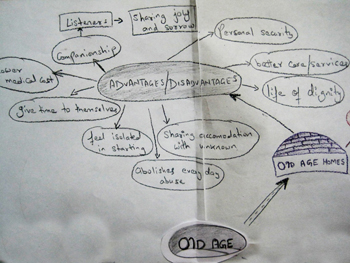 Listeners
Sharing joy
and sorrow
Companionship
Personal security
lower
medical cost
ADVANTAGES/DISADVANTAGES
better care/services
life of dignity
give time to themselves
feel isolated
in starting
Sharing accomodation
with unknown
Abolishes every day
abuse
OlD AGE HOMES
OlD AGE